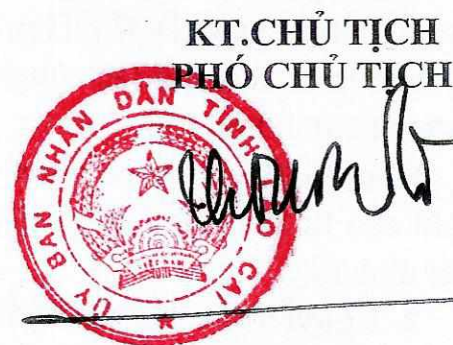 KT.CHỦ TỊCH
PHÓ CHỦ TỊCH
ỦY BAN NHÂN DÂN TỈNH LÀO CAI